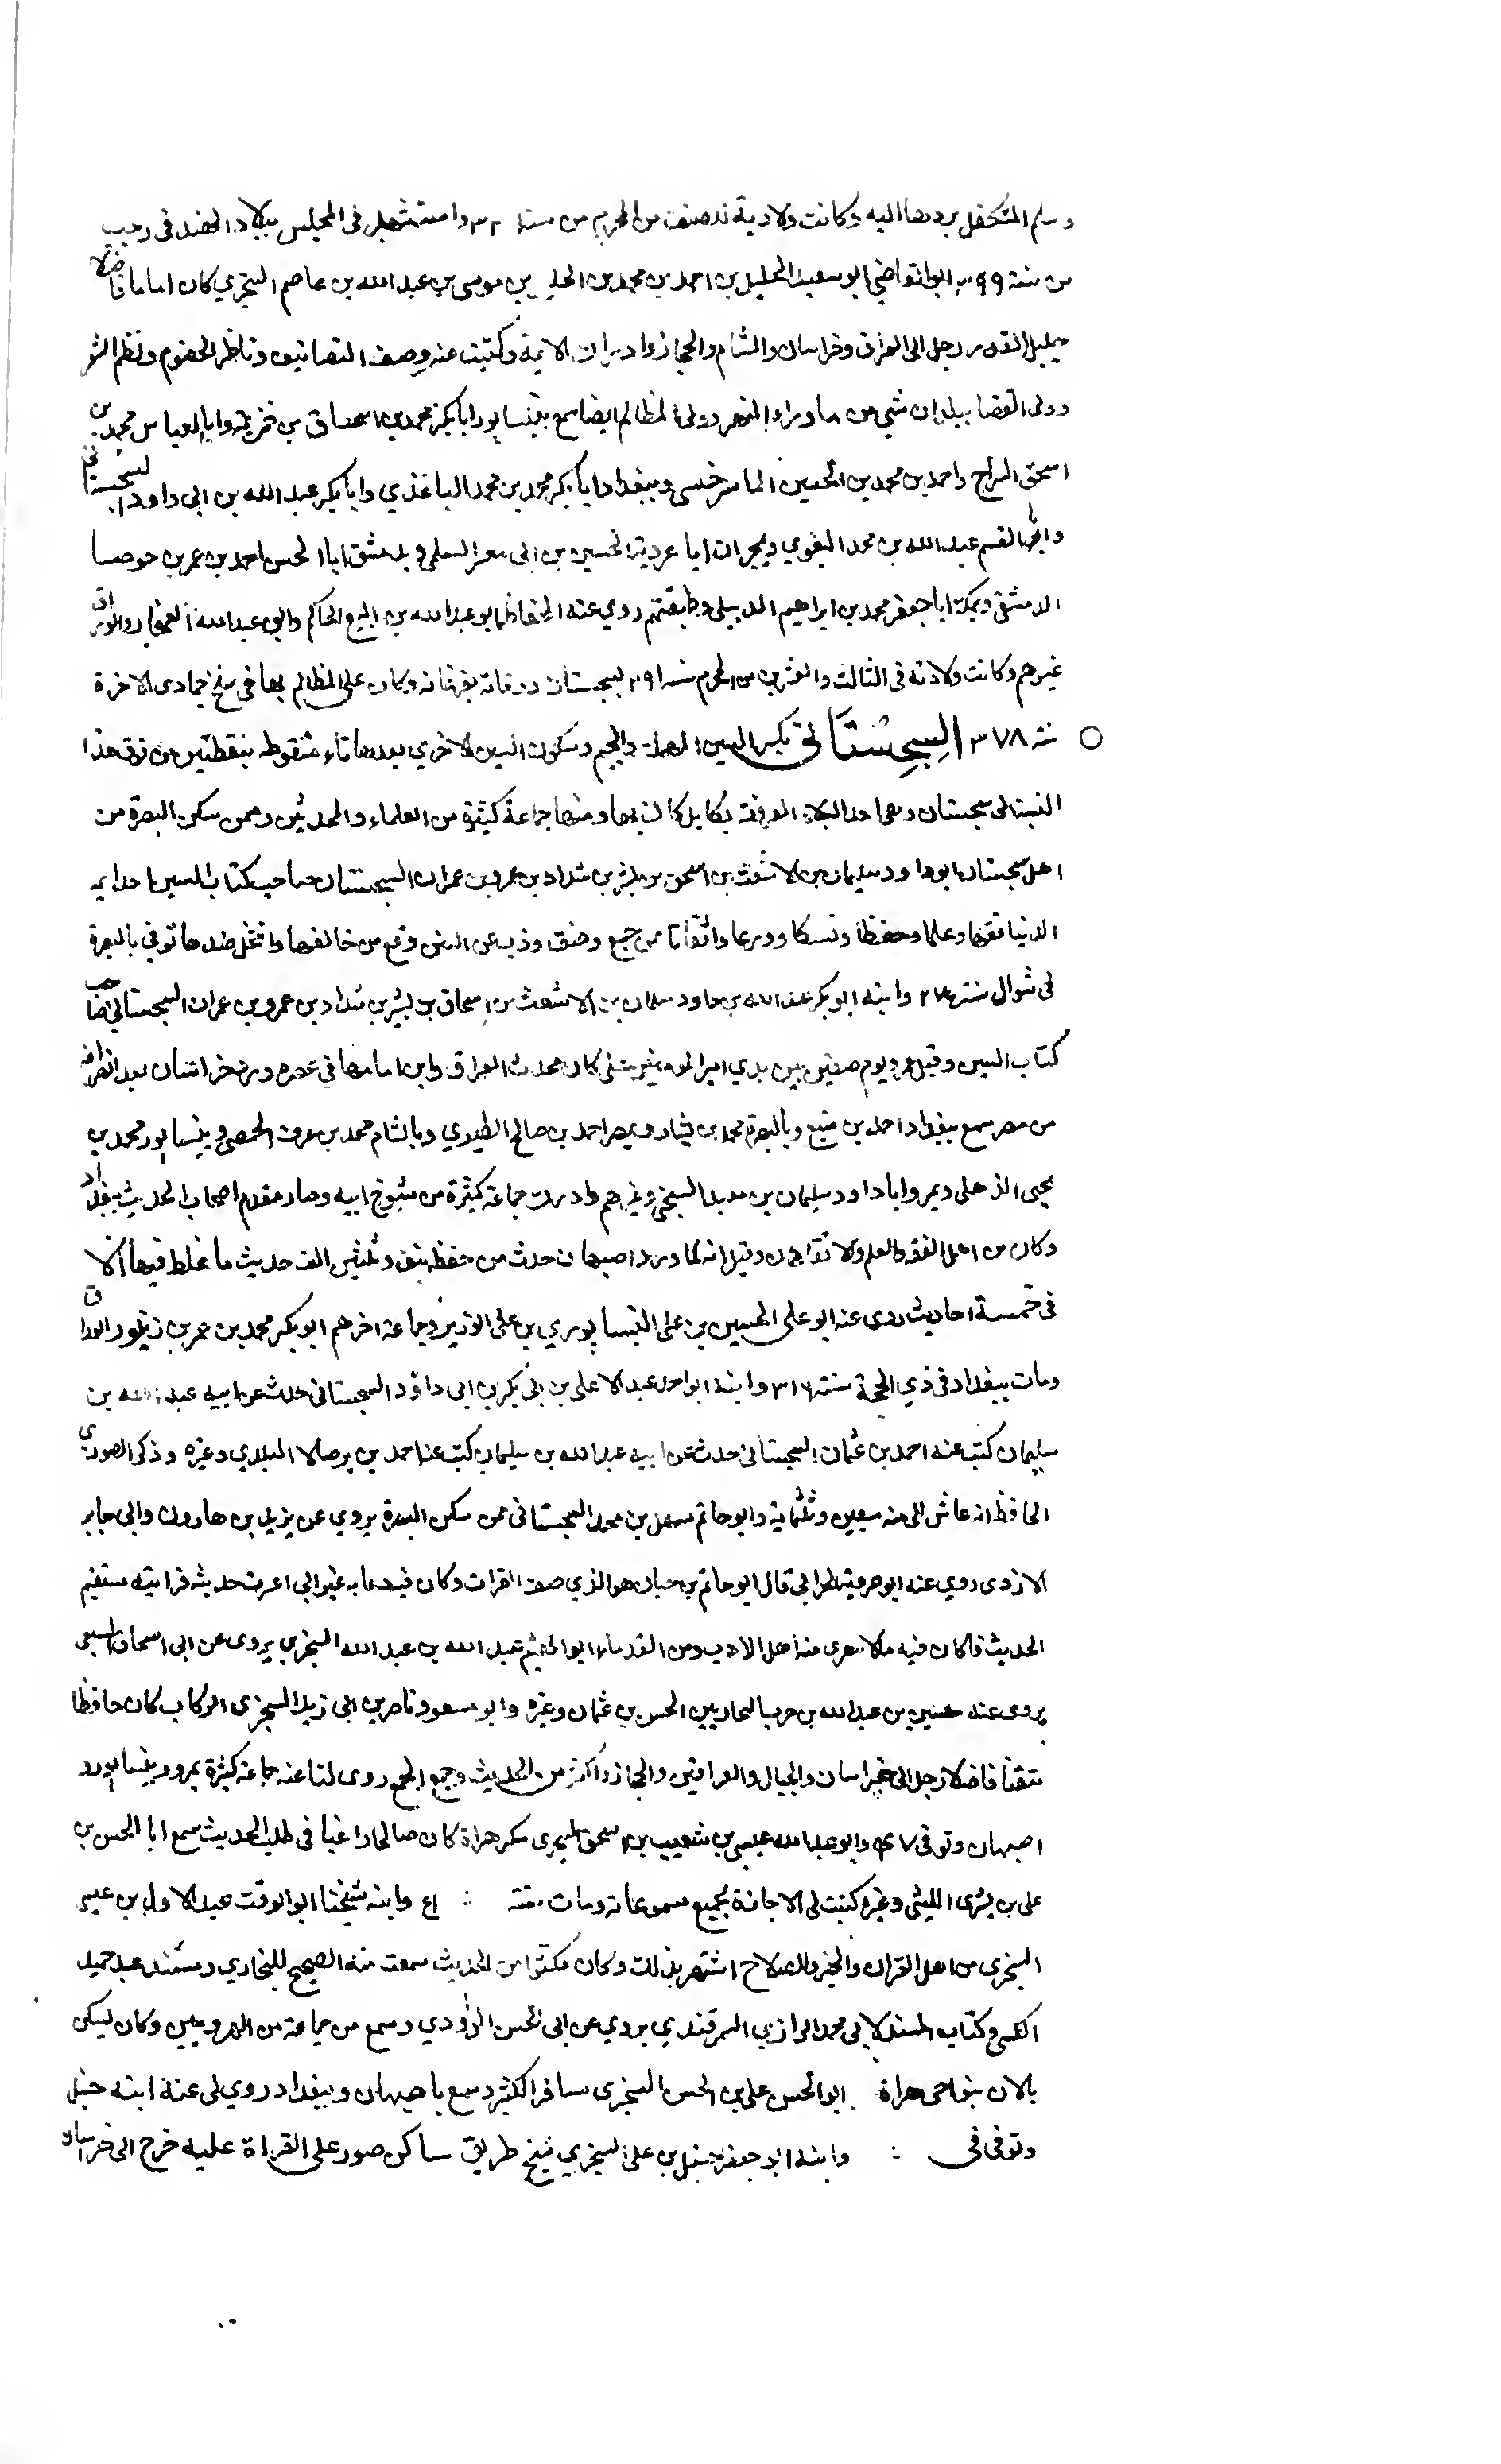 وسلم المتكفل بردها اليه وكانت ولادية نلصنف من المحرم من سنة واستشهد فى المجلس ببلاد الهند فى رجب
من سنة ٣٩٩ ابو القاضى ابو سعيد الخليل بن احمد بن محمد بن الخليل بن موسى بن عبد الله بن عاصم السجزي كان اماما فاضلا
جليل القدر رحل الى العراق وخراسان والشام والحجاز وادرك الايمة وكتبت عنه وصنف التصانيف وناظر الخصوم ونظم الشعر
وولى القضا ببلدان شي من ما وراء النهر وولى المظالم ايضا سمع بنيسابور ابا بكر محمد بن اسحاق بن خزيمة وابا العباس محمد بن
اسحق السراج واحمد بن محمد بن الحسين الماسرخسى وببغداد ابا بكر محمد بن محمد الباغندي وابا بكر عبد الله بن ابى داود السجستانى
وابا القسم عبد الله بن محمد البغوي وبحران ابا عروبة الحسين بن ابى معشر السلمى وبدمشق ابا الحسن احمد بن عمير بن حوصا
الدمشقى وبمكة ابا جعفر محمد بن ابراهيم الديبلى وطبقتهم روي عنه الحفاظ ابو عبد الله بن البيع الحاكم وابو عبد الله الغنجار
غيرهم وكانت ولادته فى الثالث والعشرين من المحرم سنة ٢٩١ بسجستان ووفاته بفرغانه وكان على المظالم بها فى سلخ جمادى الاخرة
سنة ٣٧٨ السِجِسْتَانى بكسر السين المهملة والجيم وسكون السين الاخري بعدها تاء منقوطه بنقطتين من فوق هذا
النسبة الى سجستان وهى احد البلاد المعروفة بكابل كان بها ومنها جماعة كثيرة من العلماء والمحدثين وممن سكن البصرة من
اهل سجستان ابو داود سليمان بن الاشعث بن اسحق بن بشير بن شداد بن عمرو بن عمران السجستان صاحب كتاب السنن احد ايمه
الدنيا فقها وعلما وحفظا ونسكا وورعا واتقانا ممن جمع وصنف وذب عن السنن وقمع من خالفها وانتحل ضدها توفي بالبصرة
فى شوال سنة ٢٧٥ وابنه ابو بكر عبد الله بن داود سلمان بن الاشعث بن اسحاق بن بشير بن شداد بن عمرو بن عمران السجستاني صاحب
كتاب السنن وقتل عمرو يوم صفين بين يدي امير المومنين على كان محدث العراق وابن امامها فى عصره ورد خراسان بعد انصرافه
من مصر سمع ببغداد احمد بن منيع وبالبصرة محمد بن بشار وبمصر احمد بن صالح الطبري وبالشام محمد بن عوف الحمصى وبنيسابور محمد بن
يحيى الذهلى وبمرو ابا داود سليمان بن معبد السنجى وغيرهم وادرك جماعة كثيرة من شيوخ ابيه وصار مقدم اصحاب الحديث ببغداد
وكان من اهل الفقه والعلم والاتقان وقيل انه لما ورد اصبهان حدث من حفظه بنيف وثلثين الف حديث ما غلط فيها الا
فى خمسة احاديث روى عنه ابو على الحسين بن على النيسابوري بن على الوزير وجماعة اخرهم ابو بكر محمد بن عمر بن زنبور الوراق
ومات ببغداد فى ذي الحجة سنة ٣١٦ وابنه ابو احمد عبد الاعلى بن ابى بكر بن ابى داؤد السجستانى حدث عن ابيه عبد الله بن
سليمان كتب عنه احمد بن عثمان السجستانى حدث عن ابيه عبد الله بن سليمان كتب عنه احمد بن برصالا البلدي وغيره وذكر الصوري
الحافظ انه عاش الى سنه سبعين وثلثماية وابو حاتم سهل بن محمد السجستانى ممن سكن البصرة يروي عن يزيد بن هارون وابى جابر
الازدى روي عنه ابو عروبة الحرانى قال ابو حاتم بن حبان هو الذي صنف القرات وكان فيه دعابه غير انى اعبرت حديثه فرايته مستقيم
الحديث فاكان فيه ملا معرى منه اهل الادب ومن القدماء ابو الهيثم عبد الله بن عبد الله السجزي يروى عن ابى اسحاق السبيعى
يروى عنه حسين بن عبد الله بن حرب البحاريين الحسن بن عثمان وغيره وابو مسعود ناصر بن ابى زيد السجزى الركاب كان حافظا
متقنا فاضلا رحل الى خراسان والجبال والعراقين والحجاز واكثر من الحديث وجمع الجمع روى لنا عنه جماعة كثيرة بمرو وبنيسابور و
اصبهان وتوفى ٤٧٧ وابو عبد الله عيسى بن شعيب بن اسحق السجزى سكن هراة كان صالحا راغبا فى طلب الحديث سمع ابا الحسن بن
على بن بشرى الليثى وغيره كتبت لى الاجازة بجميع مسموعاته ومات سنة وابنه شيخنا ابو الوقت عبد الاول بن عيسى
السجزى من اهل القران والخير والصلاح اشتهر بذلك وكان مكثرا من الحديث سمعت منه الصحيح للبخاري ومسند عبد حميد
الكسى وكتاب المسند لابى محمد الدارمي السمرقندي يروي عن ابى الحسن الداؤدي وسمع من جماعة من الهرويين وكان يسكن
بالان بنواحى هراة ابو الحسن على بن الحسن السجزى سافر الكثير وسمع باصبهان وببغداد روي لى عنه ابنه حنبل
وتوفى فى وابنه ابو جعفر حنبل بن على السجزي شيخ طريق ساكن صور على القراة عليه خرج الى خراسان